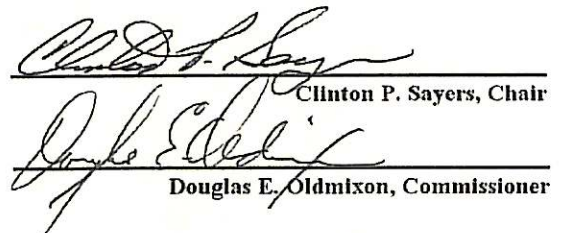 Clinton P. Sayers, Chair
Douglas E. Oldmixon, Commissioner